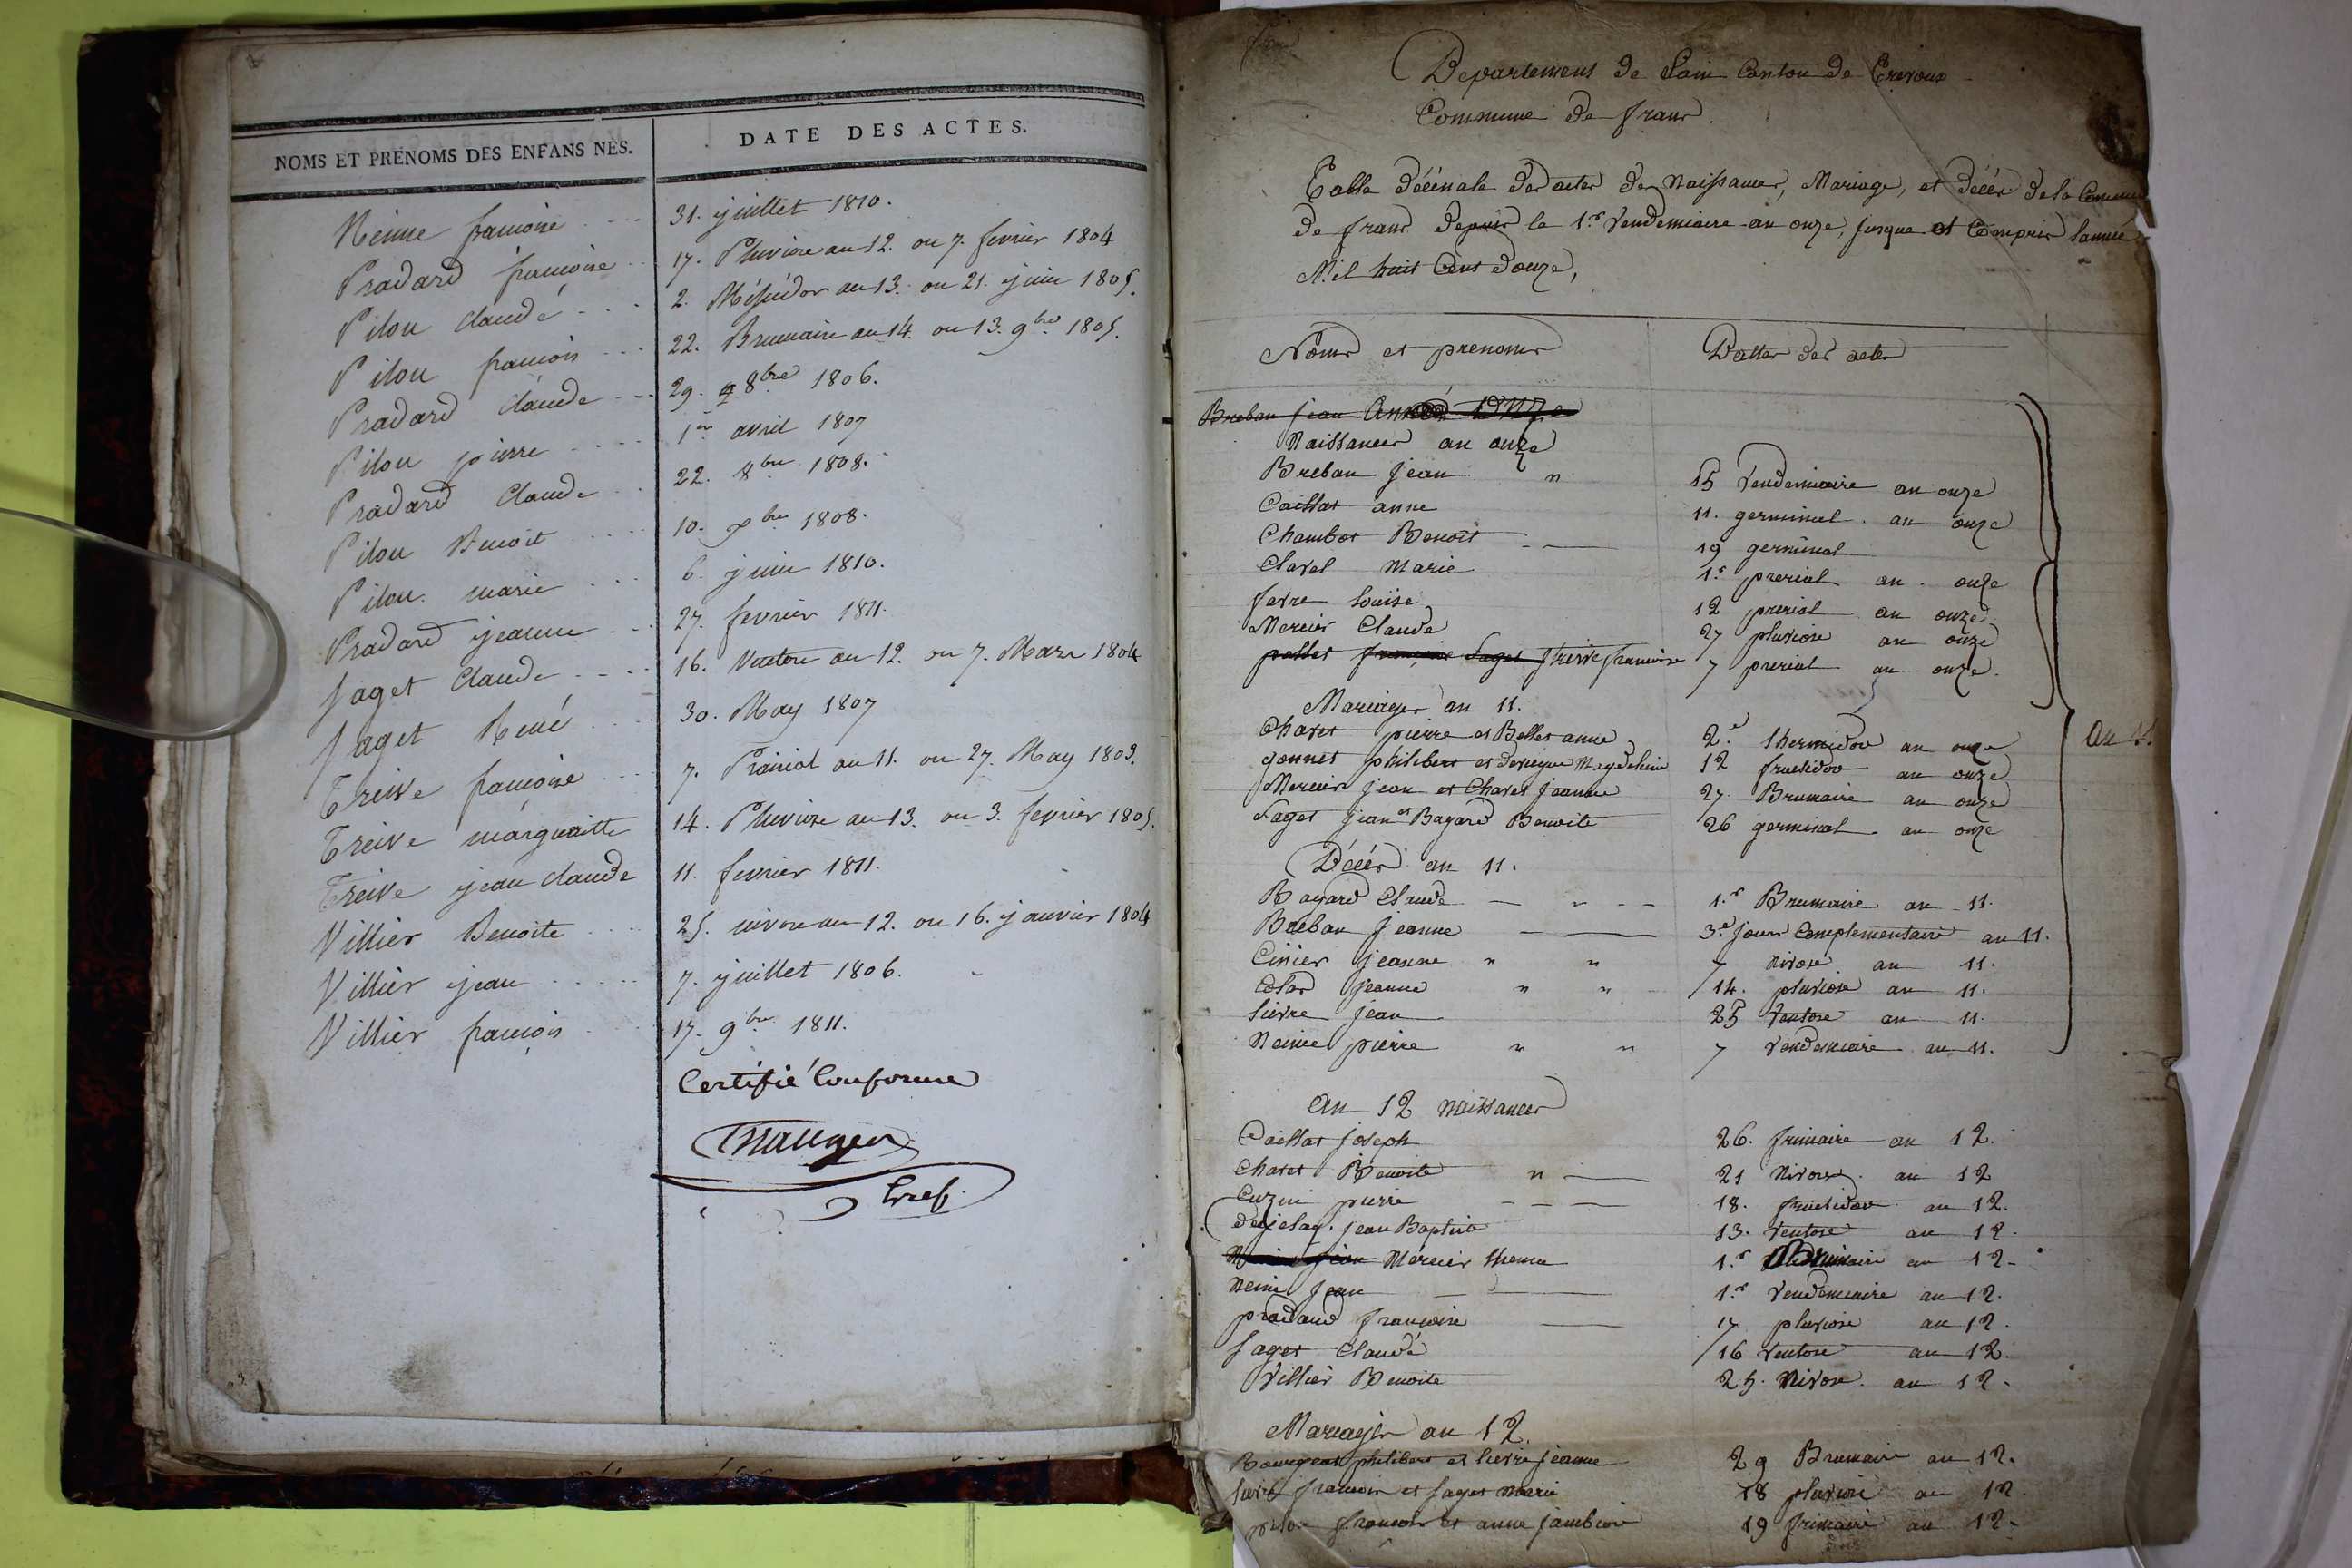 NOMS ET PRENOMS DES ENFANS NÉS.
DATE DES ACTES.
Neime francoise 31. juillet 1810.
Pradard francoise 17. Pluviose an 12. ou 7. fevrier 1804
Pilon claude 2. Messidor an 13. ou 21. juin 1805.
Pilon francois 22. Brumaire an 14. ou 13. 9bre 1805.
Pradard claude 29. 8bre 1806.
Pilon pierre 1er avril 1807
Pradard Claude 22. 8bre 1808.
Pilon Benoit 10. xbre 1808.
Pilon marie 6. juin 1810.
Pradard jeanne 27. fevrier 1811.
Saget Claude 16. Ventose an 12. ou 7. Mars 1804
Saget René 30. May 1807
Treive francoise 7. Prairial an 11. ou 27. May 1803.
Treive marguaitte 14. Pluviose an 13. ou 3. fevrier 1805.
Treive jean claude 11. fevrier 1811.
Villier Benoite 25. nivose an 12. ou 16. janvier 1804
Villier jean 7. juillet 1806.
Villier francois 17. 9bre 1811.
Certifié Conforme
Gref.
Departement de Lain Canton de Trevoux
Commune de frans.
Table décénale des actes de Naissances, Mariage, et décés de la Commune
de frans depuis le 1er Vendemiaire an onze, jusque et Compris lannée
Mil huit Cent douze,
Noms et prenoms Dattes des actes
Breban jean Année onze
Naissances an onze
Breban jean " 15 Vendemiaire an onze
Caillat anne 11. germinal an onze
Chambet Benoit 19 germinal
Clavel Marie 1er prerial an onze
favre louise 12 prerial an onze
Mercier Claude 27 pluviose an onze
Saget treive francoise 7 prerial an onze.
Mariages an 11.
Chavet pierre et Bellet anne 2e thermidor an onze
gonnet philibert et Magdeleine 12 fructidor an onze
Mercier jean et Chavet jeanne 27. Brumaire an onze
Saget jean et Bagard Benoite 26 germinal an onze
an 11.
Décés an 11.
Bagard Claude 1er Brumaire an 11.
Breban jeanne 3e jour Complementaire an 11.
Cinier jeanne " " 7 nivose an 11.
jeanne " " 14. pluviose an 11.
lievre jean 25 Ventose an 11.
Neime pierre " " 7 Vendemiaire an 11.
An 12 naissances
Caillat joseph 26. frimaire an 12.
Chavet Benoite " 21 Nivose an 12
Cuzin pierre 18. fructidor an 12.
jean Baptiste 13. Ventose an 12.
Mercier 1er Brumaire an 12.
Neime jean 1er Vendemiaire an 12.
pradard francoise 17 pluviose an 12.
Saget Claude 16 Ventose an 12.
Villier Benoite 25. Nivose an 12.
Mariages an 12.
Bourgeat philibert et lievre jeanne 29 Brumaire an 12.
lievre francois et Saget marie 18 pluviose an 12
francois et anne 19 frimaire an 12.